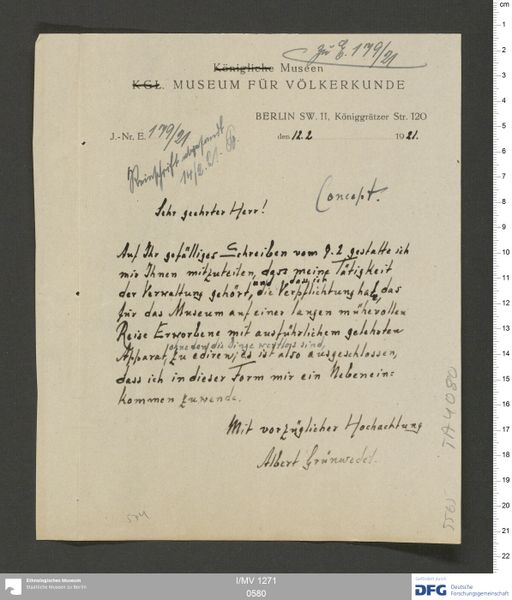 zu E. 179/21
Königliche Museen
KGL. MUSEUM FÜR VÖLKERKUNDE
BERLIN SW. 11, Königgrätzer Str. 120
J.-Nr. E. 179/21
den 12.2 1921.
Reinschrift abgesandt
14/2.21.
Concept.
Sehr geehrter Herr!
Auf Ihr gefälliges Schreiben vom 9.2 gestatte ich
mir Ihnen mitzuteilen, dass meine Tätigkeit
und dass ich
der Verwaltung gehört, die Verpflichtung habe, das
für das Museum auf einer langen mühevollen
Reise Erworbene mit ausführlichem gelehrten
ohne den die Dinge wertlos sind,
Apparat, zu edieren; es ist also ausgeschlossen,
dass ich in dieser Form mir ein Nebenein=
kommen zuwende.
Mit vorzüglicher Hochachtung
Albert Grünwedel.
TA 4080
574
cm
1
2
3
4
5
6
7
8
9
10
11
12
13
14
15
16
17
18
19
20
21
22
Ethnologisches Museum
Staatliche Museen zu Berlin
I/MV 1271
0580
Gefördert durch
DFG Deutsche
Forschungsgemeinschaft